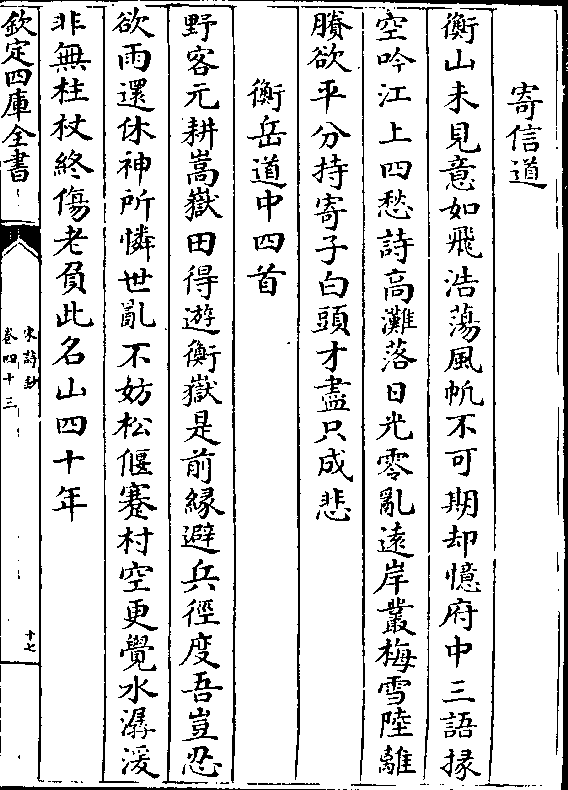 寄信道
衡山未見意如飛浩蕩風帆不可期却憶府中三語掾
空吟江上四愁詩高灘落日光零亂遠岸叢梅雪陸離
賸欲平分持寄子白頭才盡只成悲
衡岳道中四首
野客元耕嵩嶽田得遊衡嶽是前縁避兵徑度吾豈忍
欲雨還休神所憐世亂不妨松偃蹇村空更覺水潺湲
非無柱杖終傷老負此名山四十年
欽定四庫全書
宋詩鈔
卷四十三
十七